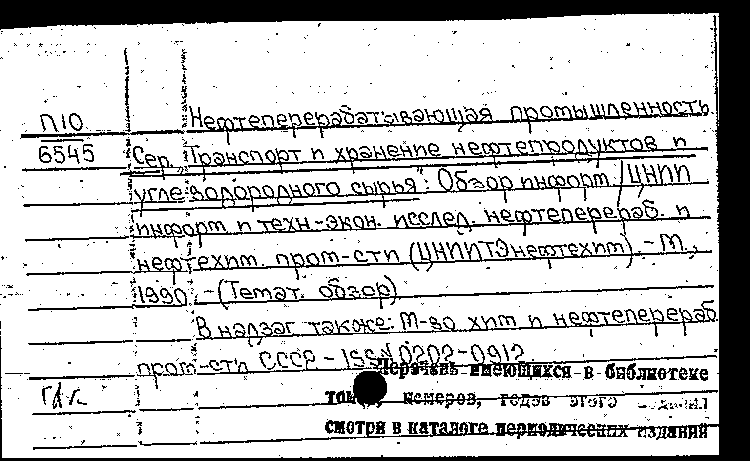 П10
6545
Нефтеперерабатывающая промышленность.
Сер. "Транспорт и хранение нефтепродуктов и
углеводородного сырья": Обзор информ. / ЦНИИ
информ. и техн.-экон. исслед. нефтеперераб. и
нефтехим. пром-сти (ЦНИИТЭнефтехим). - М.,
1990. - (Темат. обзор)
В надзаг. также: М-во хим и нефтеперераб
пром-сти СССР - ISSN 0202-0912
Перечень имеющихся в библиотеке
томов, номеров, годов этого издания
смотри в каталоге периодических изданий